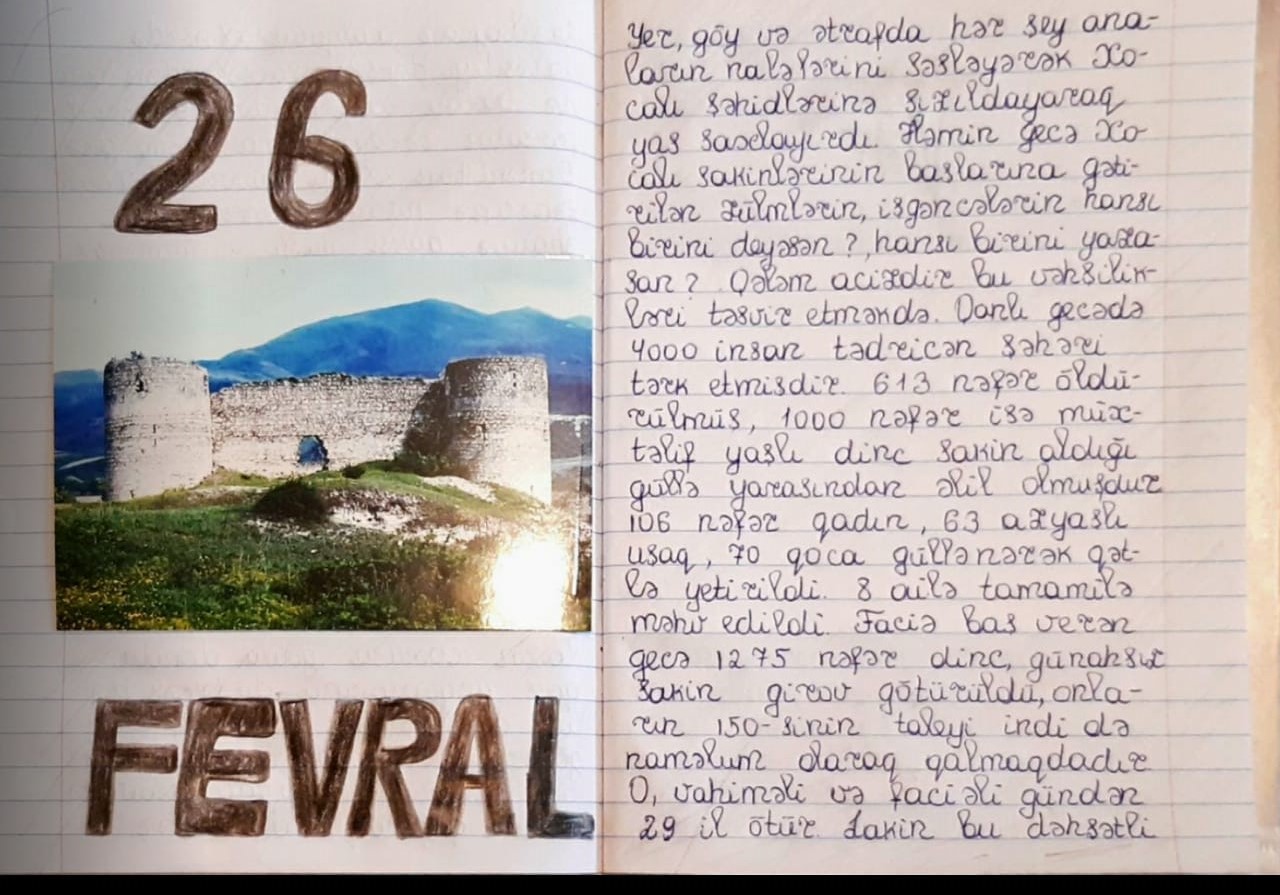 26
FEVRAL
Yer, göy və ətrafda hər şey ana-
ların nalələrini səsləyərək Xo-
calı şəhidlərinə sızıldayaraq
yas saxlayırdı. Həmin gecə Xo-
calı sakinlərinin başlarına gəti-
rilən zülmlərin, işgəncələrin hansı
birini deyəsən?, hansı birini yaza-
san? Qələm acizdir bu vəhşilik-
ləri təsvir etməkdə. Qanlı gecədə
4000 insan tədricən şəhəri
tərk etmişdir. 613 nəfər öldü-
rülmüş, 1000 nəfər isə müx-
təlif yaşlı dinc sakin aldığı
güllə yarasından əlil olmuşdur
106 nəfər qadın, 63 azyaşlı
uşaq, 70 qoca güllənərək qət-
lə yetirildi. 8 ailə tamamilə
məhv edildi. Faciə baş verən
gecə 1275 nəfər dinc, günahsız
sakin girov götürüldü, onla-
rın 150-sinin taleyi indi də
naməlum olaraq qalmaqdadır
O, vahiməli və faciəli gündən
29 il ötür. Lakin bu dəhşətli